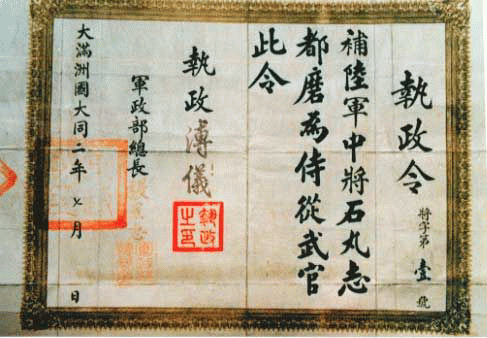 執政令
将字第壹號
補陸軍中將石丸志
都磨為侍從武官
此令
執政溥儀
執政之印
軍政部總長
大滿洲國大同二年七月 日